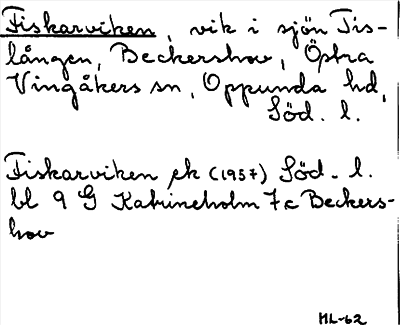 Fiskarviken, vik i sjön Tis-
lången, Beckershov, Östra
Vingåkers sn, Oppunda hd,
Söd. l.
Fiskarviken ek (1957) Söd. l.
bl 9 G Katrineholm 7c Beckers-
hov
ML-62